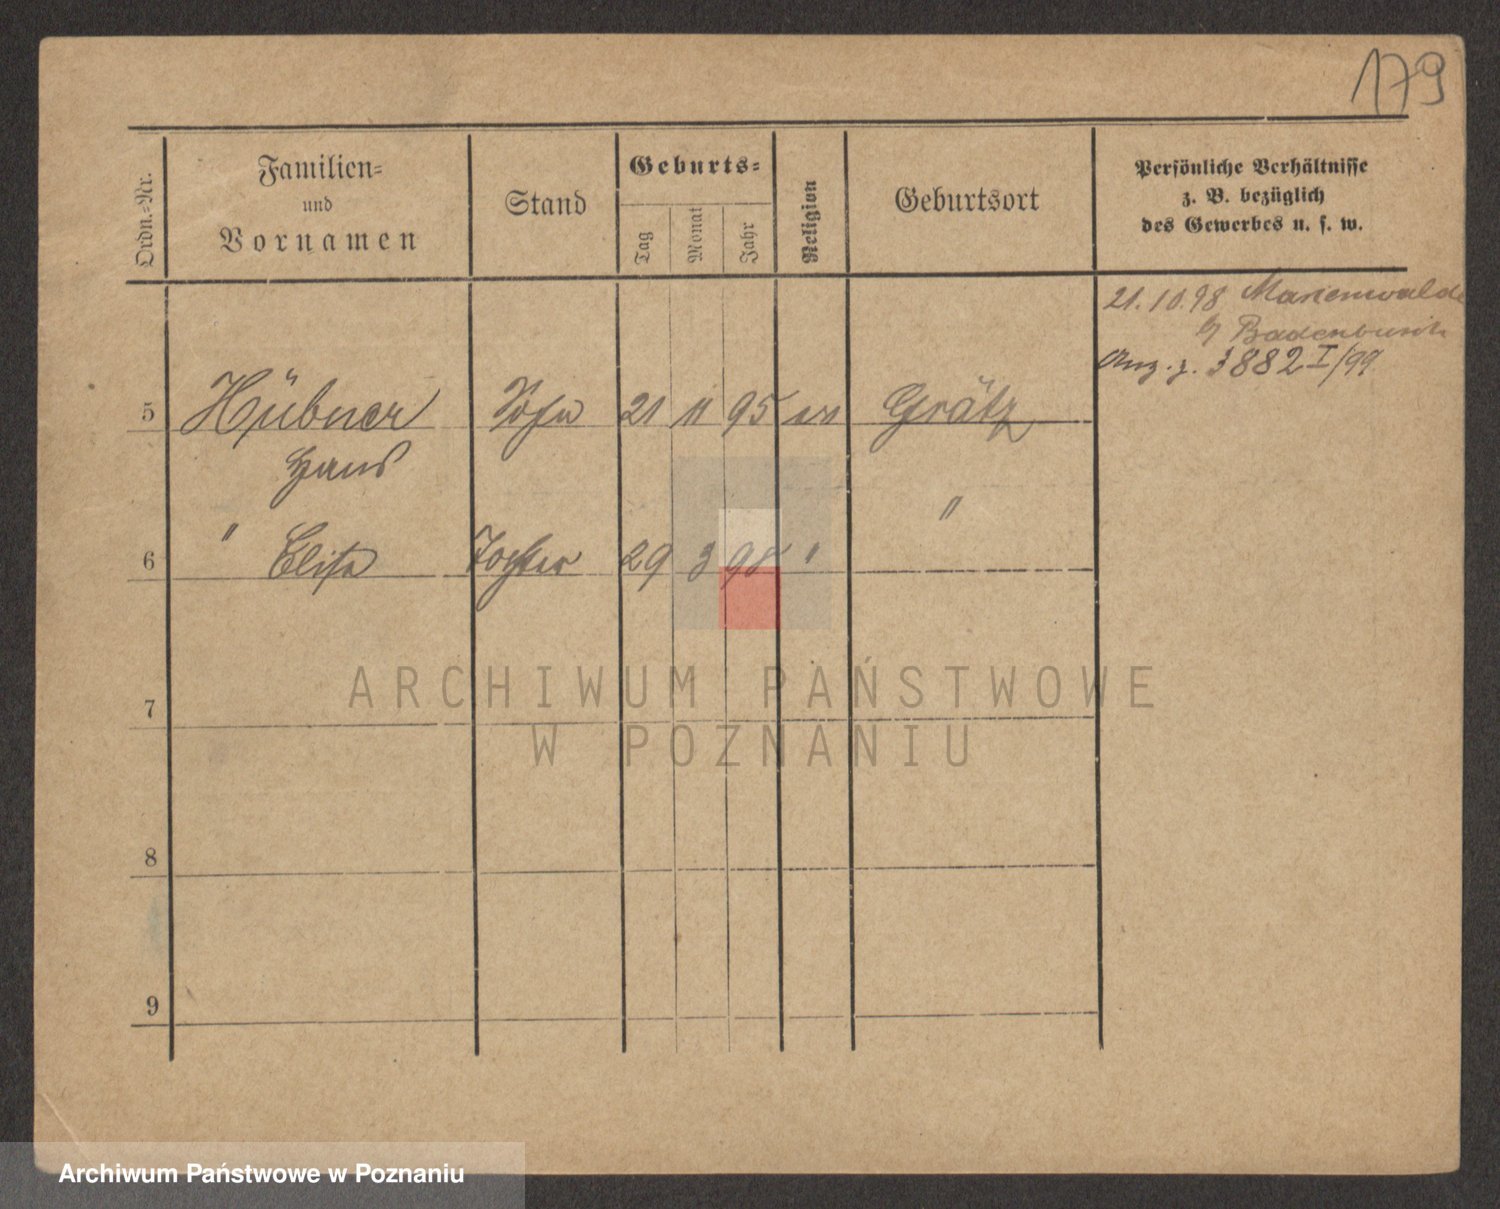 179
Ordn.-Nr.
Familien-
und
Vornamen
Stand
Geburts-
Tag
Monat
Jahr
Religion
Geburtsort
Persönliche Verhältnisse
z. B. bezüglich
des Gewerbes u. s. w.
21.10.98 Marienwalde
Anz. z. 3882 I/99
5 Hübner Sohn 21 11 95 ev Grätz
Hans
6 " Elise Tochter 29 3 98 " "
ARCHIWUM PAŃSTWOWE
W POZNANIU
7
8
9
Archiwum Państwowe w Poznaniu